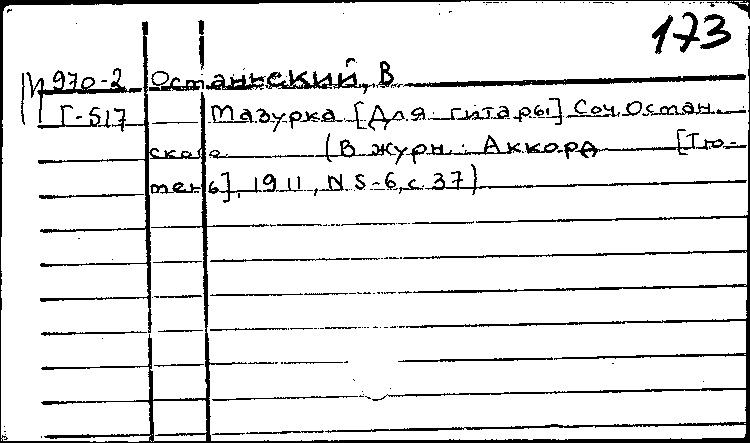 173
М 970-2 Останьский, В
Г-517 Мазурка [Для гитары] Соч. Остан.
ского (В журн.: Аккорд [Тю-
мень], 1911, N 5-6, с 37)